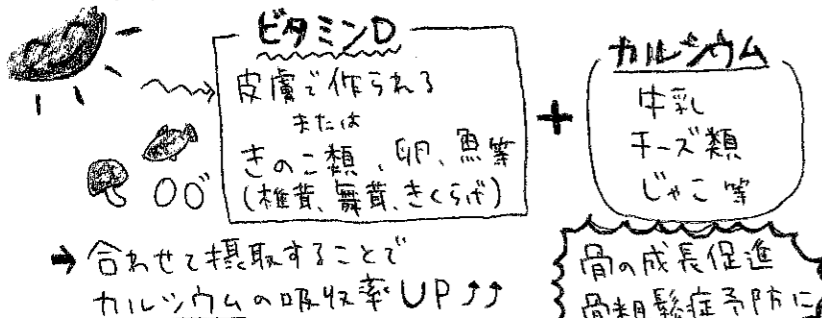 ビタミンD
皮膚で作られる
または
きのこ類、卵、魚等
(椎茸、舞茸、きくらげ)
+
カルシウム
牛乳
チーズ類
じゃこ等
→ 合わせて摂取することで
カルシウムの吸収率UP↑↑
骨の成長促進
骨粗鬆症予防に